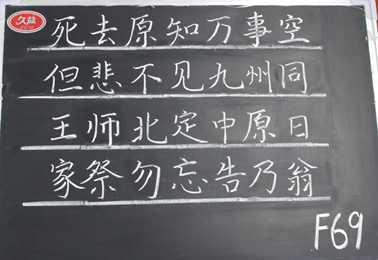 久益
死去原知万事空
但悲不见九州同
王师北定中原日
家祭勿忘告乃翁
F69